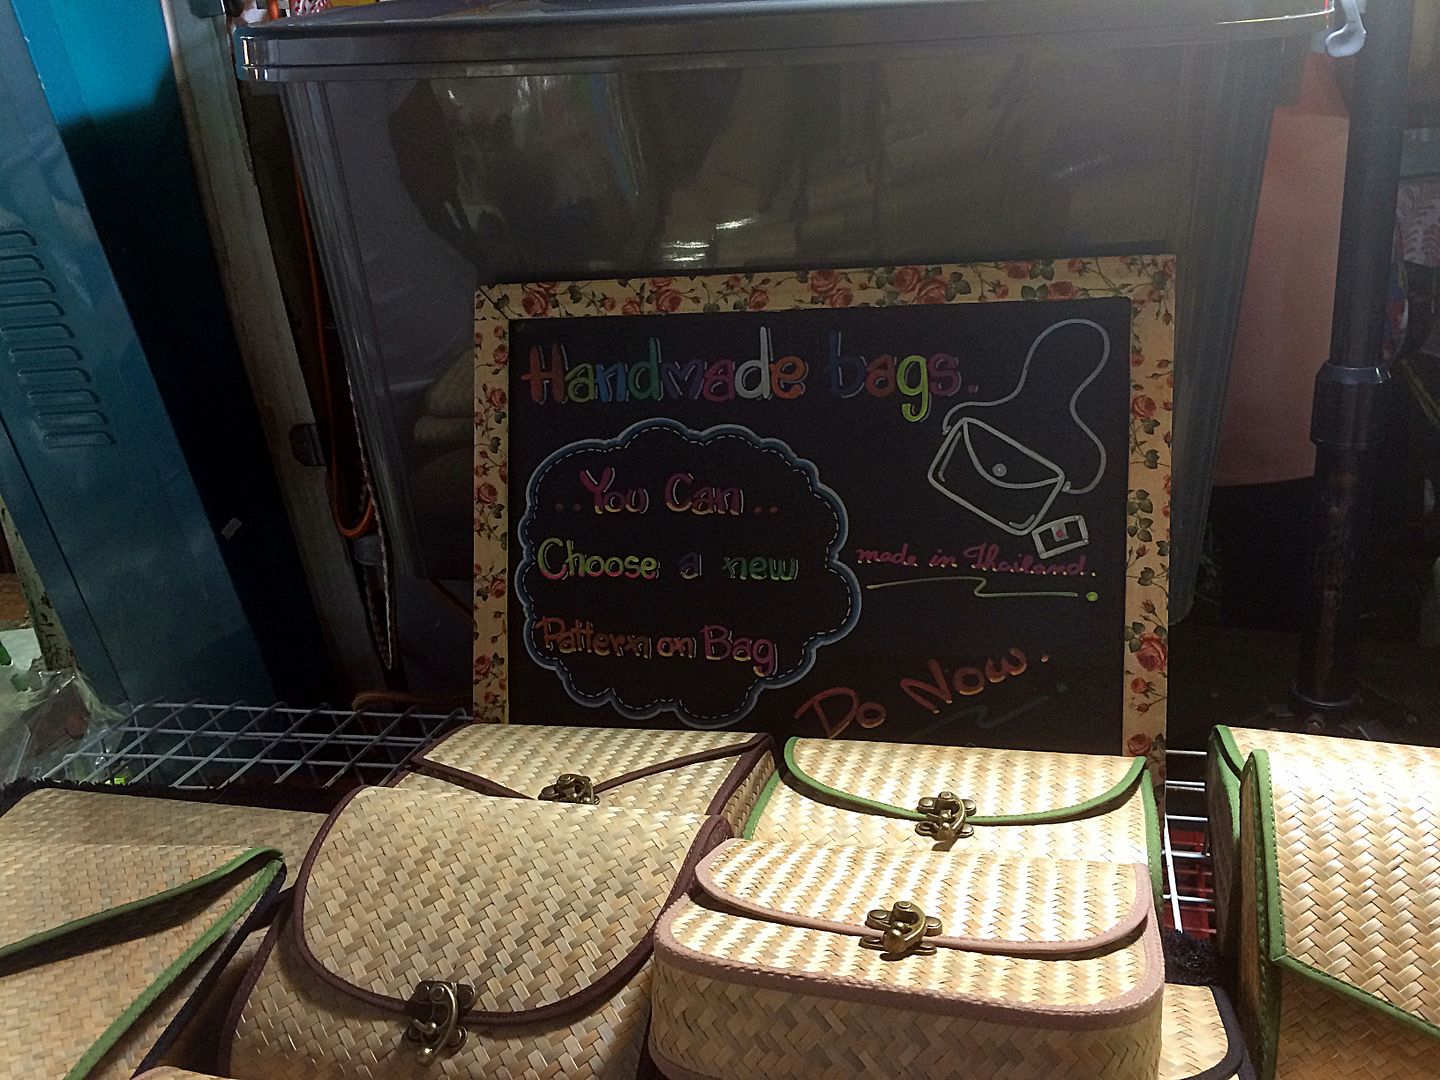 Handmade bags.
..You Can..
Choose a new
Pattern on Bag
made in Thailand.
Do Now.